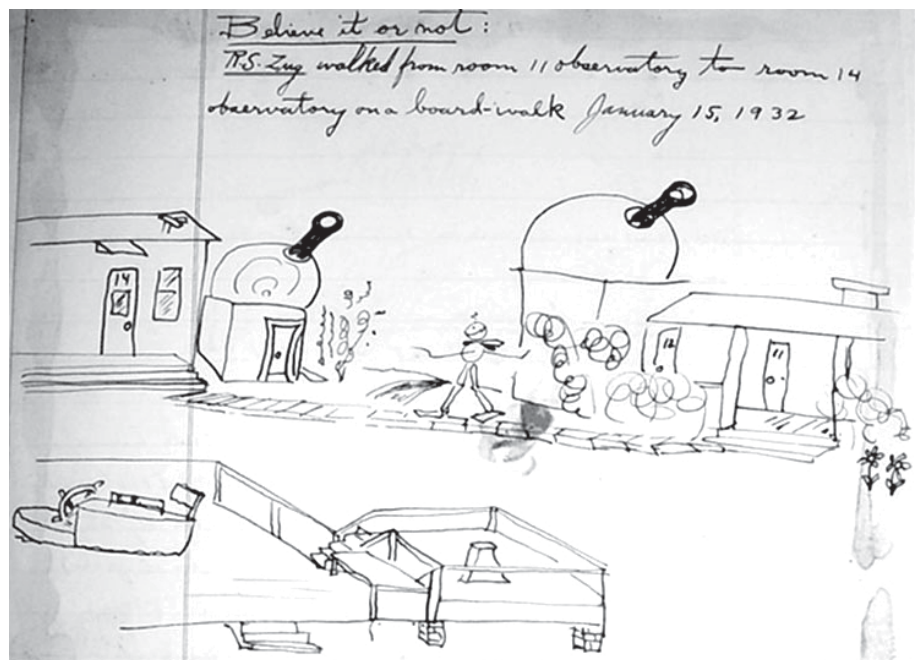 Believe it or not:
R.S. Zug walked from room 11 observatory to room 14
observatory on a board-walk January 15, 1932
14
12
11